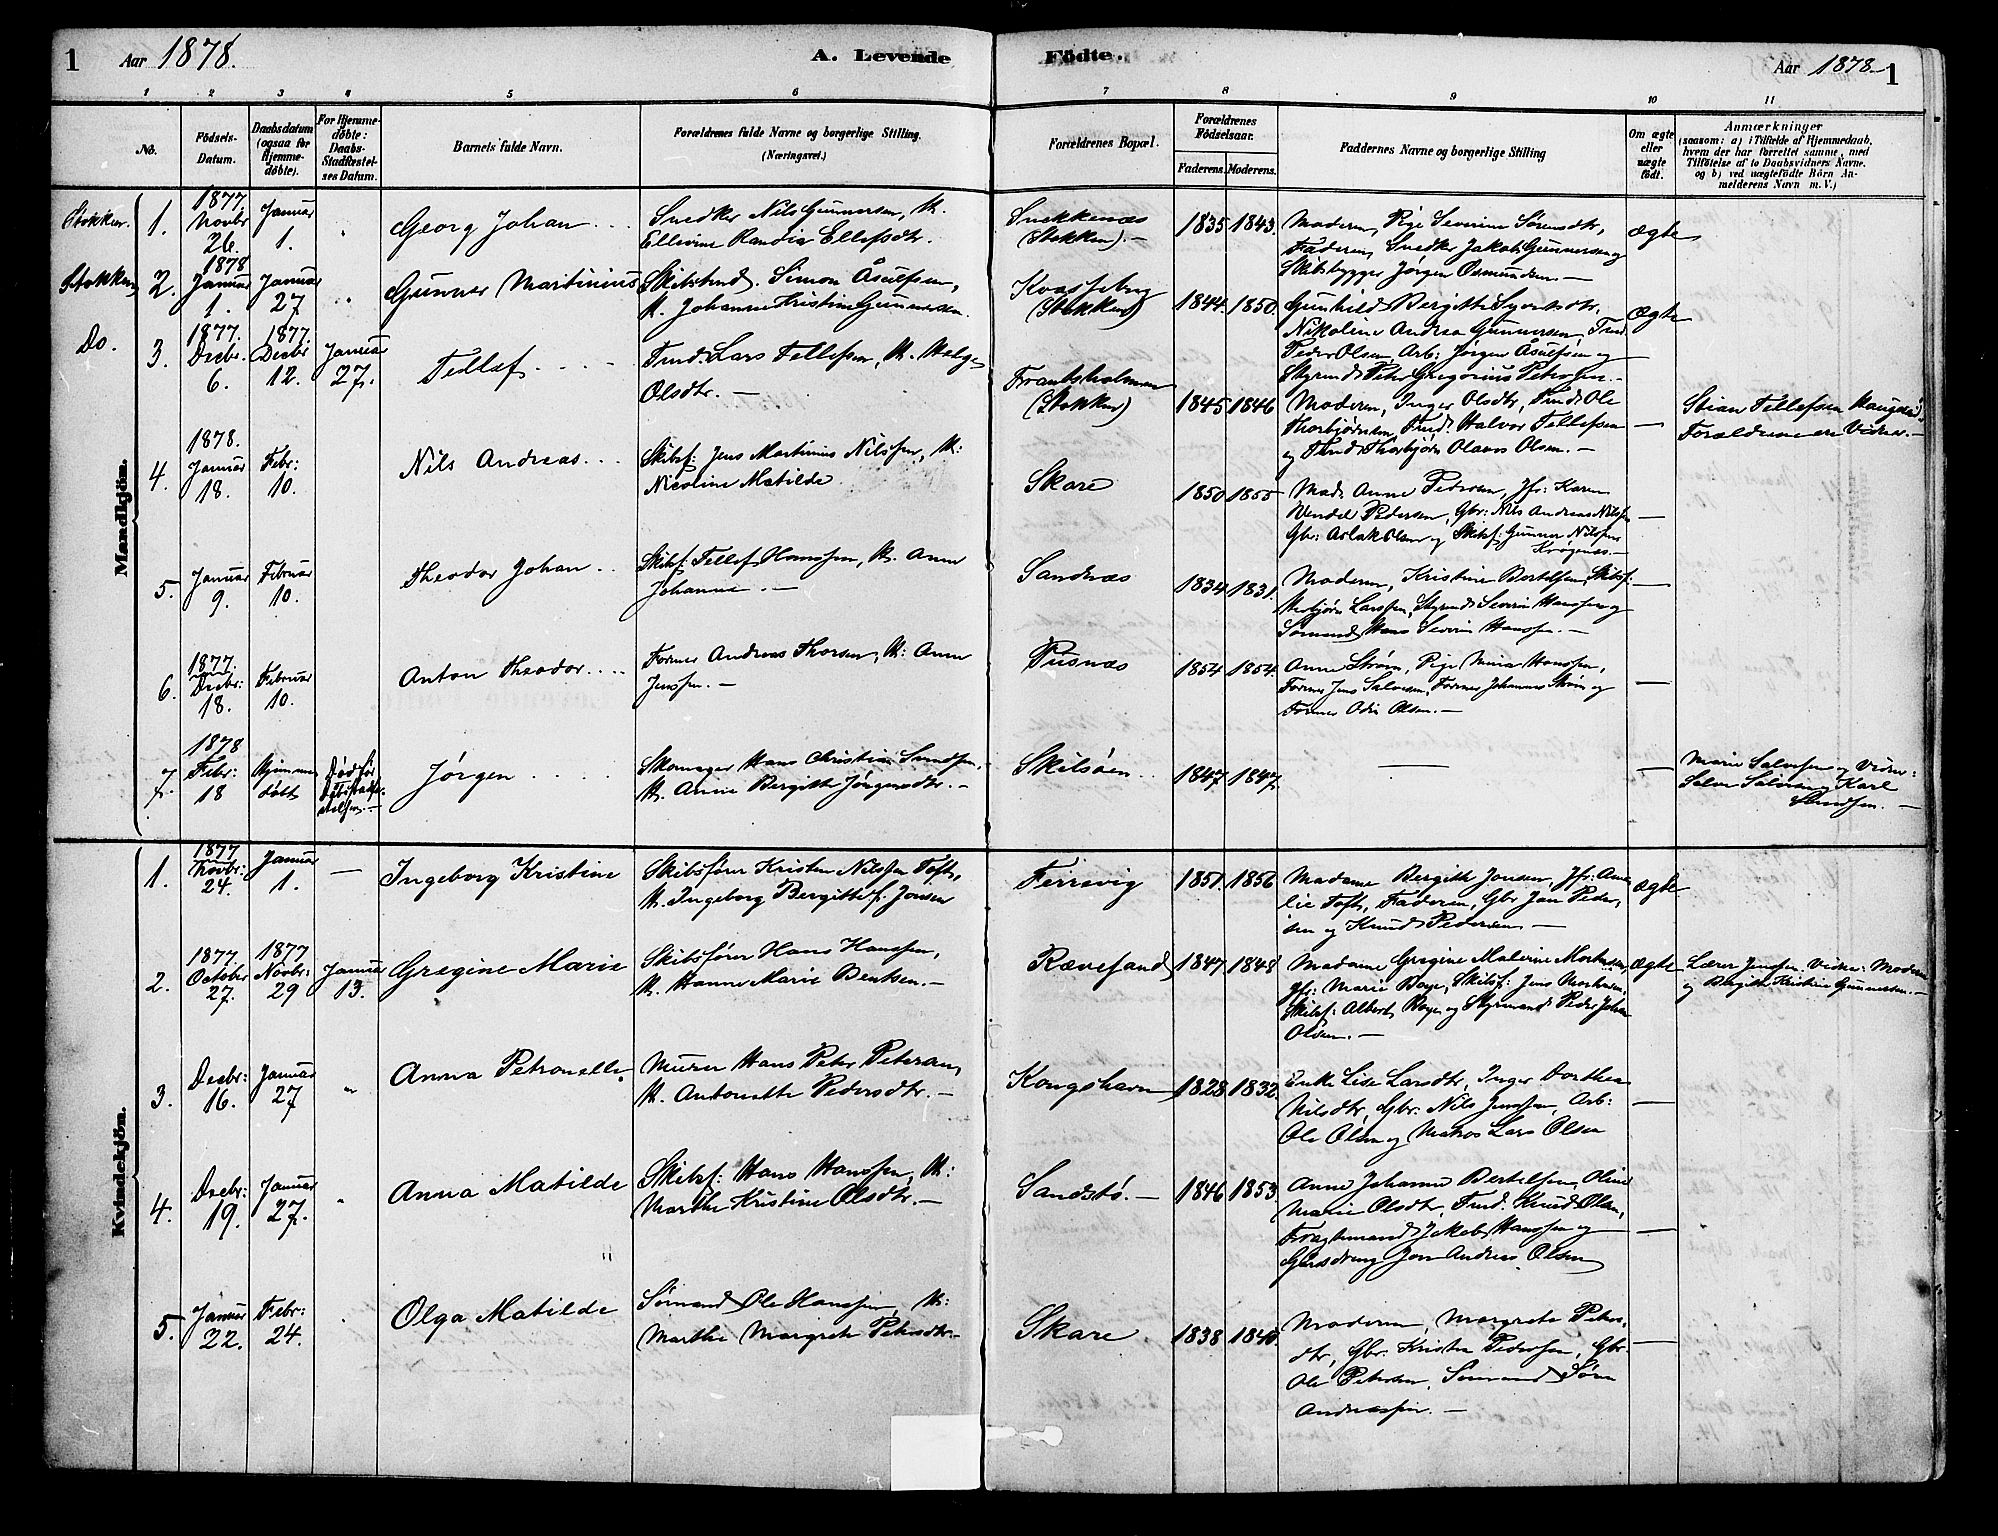 1 Aar 1878. A. Levende Födte. Aar 1878 1
1 2 3 4 5 6 7 8 9 10 11
No.
Födsels-
Datum.
Daabsdatum
(ogsaa for
Hjemme-
döbte).
For Hjemme-
döbte:
Daabs-
Stadfæstel-
ses Datum.
Barnets fulde Navn.
Forældrenes fulde Navne og borgerlige Stilling.
(Næringsvei.)
Forældrenes Bopæl.
Forældrenes
Födselsaar.
Faderens. Moderens.
Faddernes Navne og borgerlige Stilling
Om ægte
eller
uægte
födt.
Anmærkninger
(saasom: a) i Tilfælde af Hjemmedaab,
hvem der har forrettet samme, med
Tilföielse af to Daabsvidners Navne.
og b) ved uægtefödte Börn An-
melderens Navn m. V.)
Mandkjön.
Stokken. 1.
1877.
Novbr
26.
Januar
1.
Georg Johan
Snedker Nils Gunnersen, H.
Ellevine Randia Ellefsdtr.
Snekkenæs
(Stokken).—
1835 1843.
Moderen, Pige Severine Sørensdtr,
Faderen, Snedker Jakob Gunnersen og
Skibsbygger Jørgen Osmundsen.—
Ægte
Stokken 2.
1878
Januar
1.
Januar
27
Gunner Martinius
Skibstmd. Simon Åsulfsen,
H. Johanne Kristine Gunnersen.
(Stokken)
1844. 1850.
Gunhild Bergitte Syvertsdtr,
Nikoline Andrea Gunnersen, Tmd
Peder Olsen, Arb: Jørgen Åsulfsen og
Styrmd Peter Gregorius Petersen.—
Ægte
Do. 3.
1877.
Decbr.
6.
1877.
Decbr
12.
Januar
27.
Tellef
Tmd: Lars Tellefsen, H. Helge
Olsdtr.—
Frantsholmen
(Stokken)
1845 1846
Moderen, Inger Olsdtr, Tmd: Ole
Thorbjørnsen, Tmd: Halvor Tellefsen
og Tmd: Thorbjørn Olaus Olsen.—
—
Stian Tellefsen
Forældrene ere Vidner.—
4.
1878.
Januar
18.
Febr:
10.
Nils Andreas
Skibsf: Jens Martinius Nilssen, H:
Nicoline Matilde
Skare
1850 1855
Mad: Anne Pedersen, Jfr: Karen
Wendel Pedersen, Gbr: Nils Andreas Nilssen
Gbr: Aslak Olsen og Skibsf: Gunner Nilssen
Krøgenæs.—
—
5.
Januar
9.
Februar
10.
Theodor Johan
Skibsf: Tellef Hanssen, H. Anne
Johanne.—
Sandnæs
1834 1831.
Moderen, Kristine Bertelsen, Skibsf:
Larssen, Styrmd: Severin Hanssen og
Sømand Hans Severin Hanssen.—
—
6.
1877.
Decbr:
18.
Februar
10.
Anton Theodor
Tømmer Andreas Thorsen, H: Anne
Jenssen.—
Pusnæs
1854 1854.
Anne Strøm, Pige Mina Hanssen,
Tømmer Jens Salvesen, Tømmer Johannes Strøm og
Olsen.—
—
7.
1878
Febr:
18
Hjemme
døbt
Død før
Jørgen
Skomager Hans Christian
H. Anne Bergitte Jørgensdtr.—
Skilsøen.
1847 1847.
—
—
Marie Salvesen og Vidne:
og Karl
Kvindekjön.
1.
1877
Novbr:
24.
Januar
1.
—
Ingeborg Kristine
Skibsfører Kristen Nilssen Toft,
H. Ingeborg Bergitte f: Jonsen
Færvig
1851. 1856
Madame Bergitte Jonsen, Jfr: Ama-
lie Toft, Faderen, Gbr Jan Peder
sen og Knud Pedersen—
Ægte
2.
1877.
October
27.
1877
Novbr:
29
Januar
13.
Gregine Marie
Skibsfører Hans Hanssen,
H. Hanne Marie Bentsen.—
Rævesand
1847 1848
Madame Gregine Malerine
Jfr: Marie Boye, Skibsf: Jens
Skibsf: Albert Boye og Styrmand Peder Johan
Olsen.—
Ægte
Lærer Jenssen. Vidne: Moderen
og Bergitte Kristine Gunnersen.—
3.
Decbr:
16.
Januar
27
Anna Petronelle
Murer Hans Peter Petersen,
H. Antonette Pedersdtr.—
Kongshavn
1828 1832.
Enke Lise Larsdtr, Inger Dorthea
Nilsdtr, Gbr. Nils Jenssen, Arb:
Ole Olsen og Matros Lars Olsen
—
4.
Decbr:
19.
Januar
27.
Anna Matilde
Skibsf: Hans Hanssen, H:
Marthe Kristine Olsdtr.—
Sandstø.—
1846 1853.
Anne Johanne Bertelsen, Oline
Marie Olsdtr, Tmd. Knud Olsen,
Jakob Hanssen og
Jon Andreas Olsen
—
5.
Januar
22.
Febr:
24.
Olga Matilde
Sømand Ole Hanssen, H:
Marthe Margrete Petersdtr—
Skare
1838 1840.
Moderen, Margrete Peters-
dtr, Gbr. Kristen Pederssen, Gbr.
Ole Petersen, Sømand Sørn
Andreassen.—
—